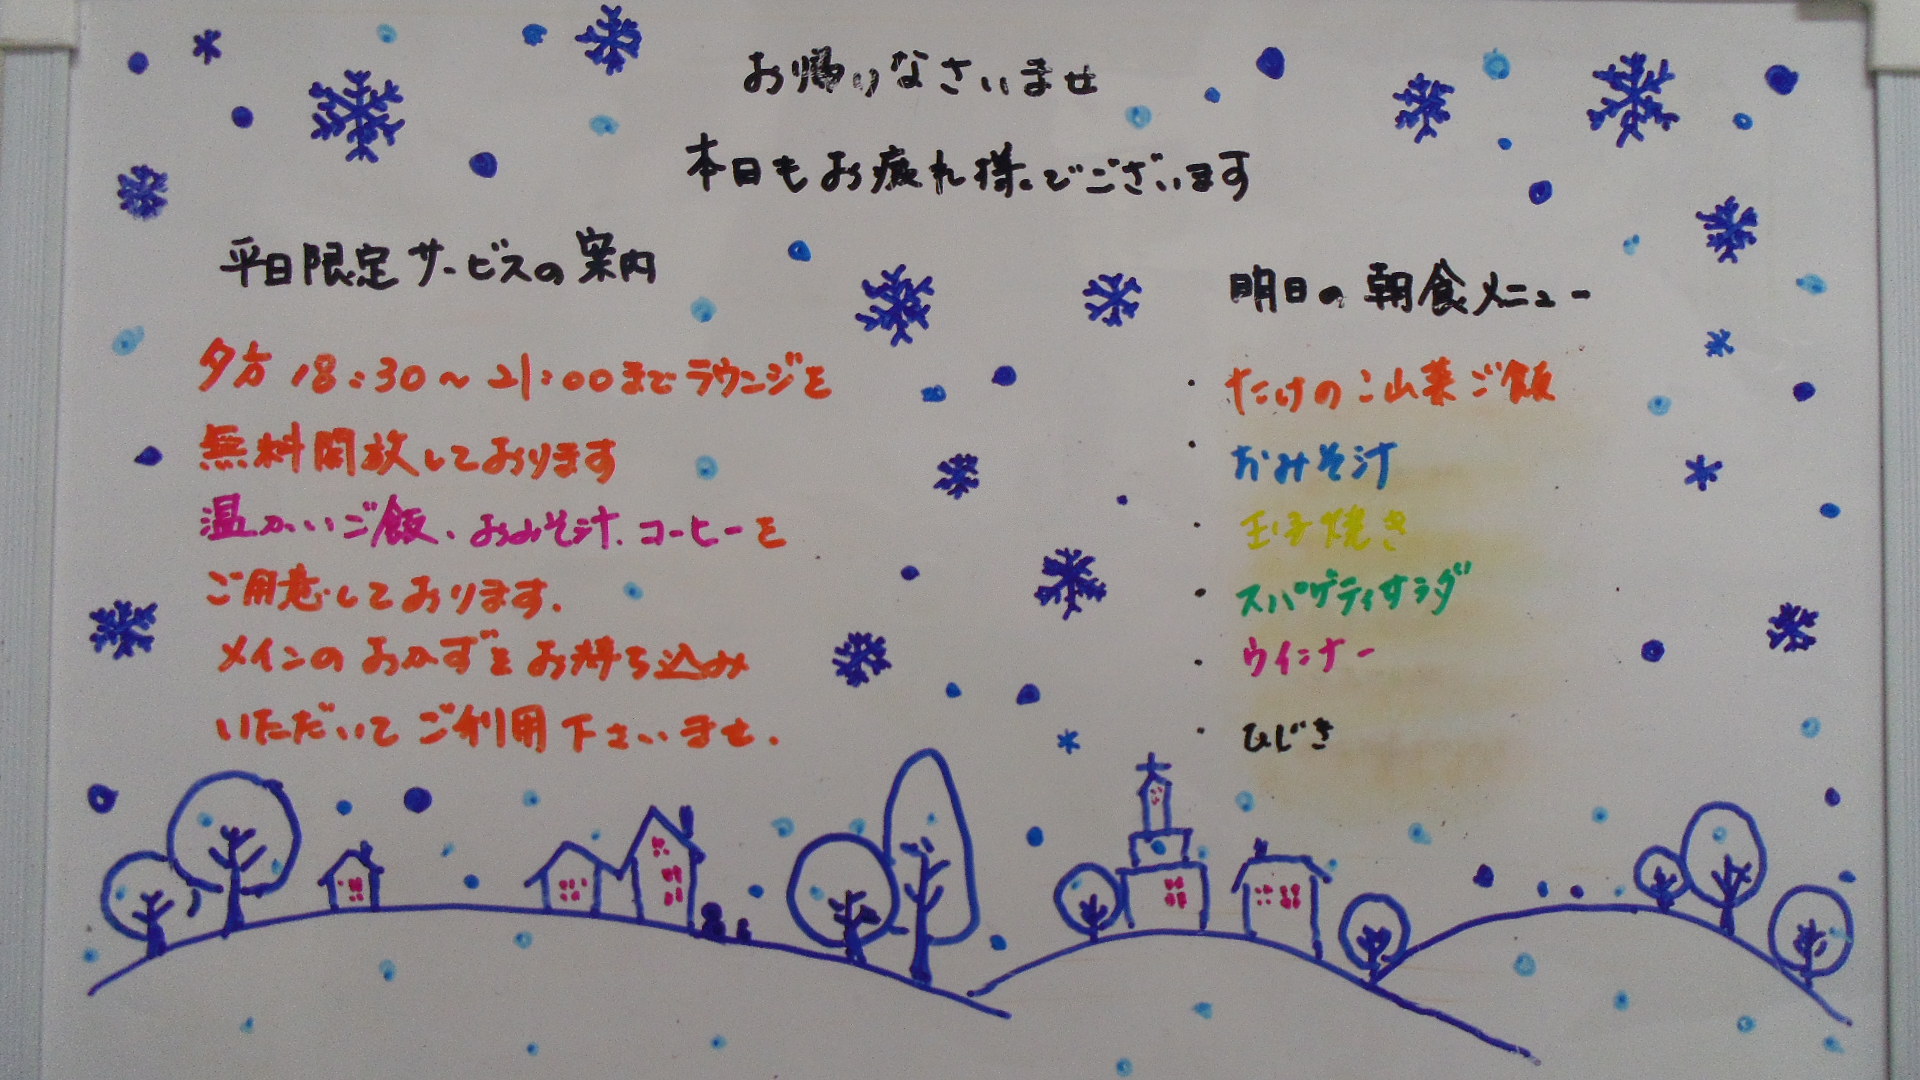 お帰りなさいませ
本日もお疲れ様でございます
平日限定サービスの案内
夕方18:30～21:00までラウンジを
無料開放しております
温かいご飯、おみそ汁、コーヒーを
ご用意しております.
メインのおかずをお持ち込み
いただいてご利用下さいませ.
明日の朝食メニュー
・たけのこ山菜ご飯
・おみそ汁
・玉子焼き
・スパゲティサラダ
・ウインナー
・ひじき